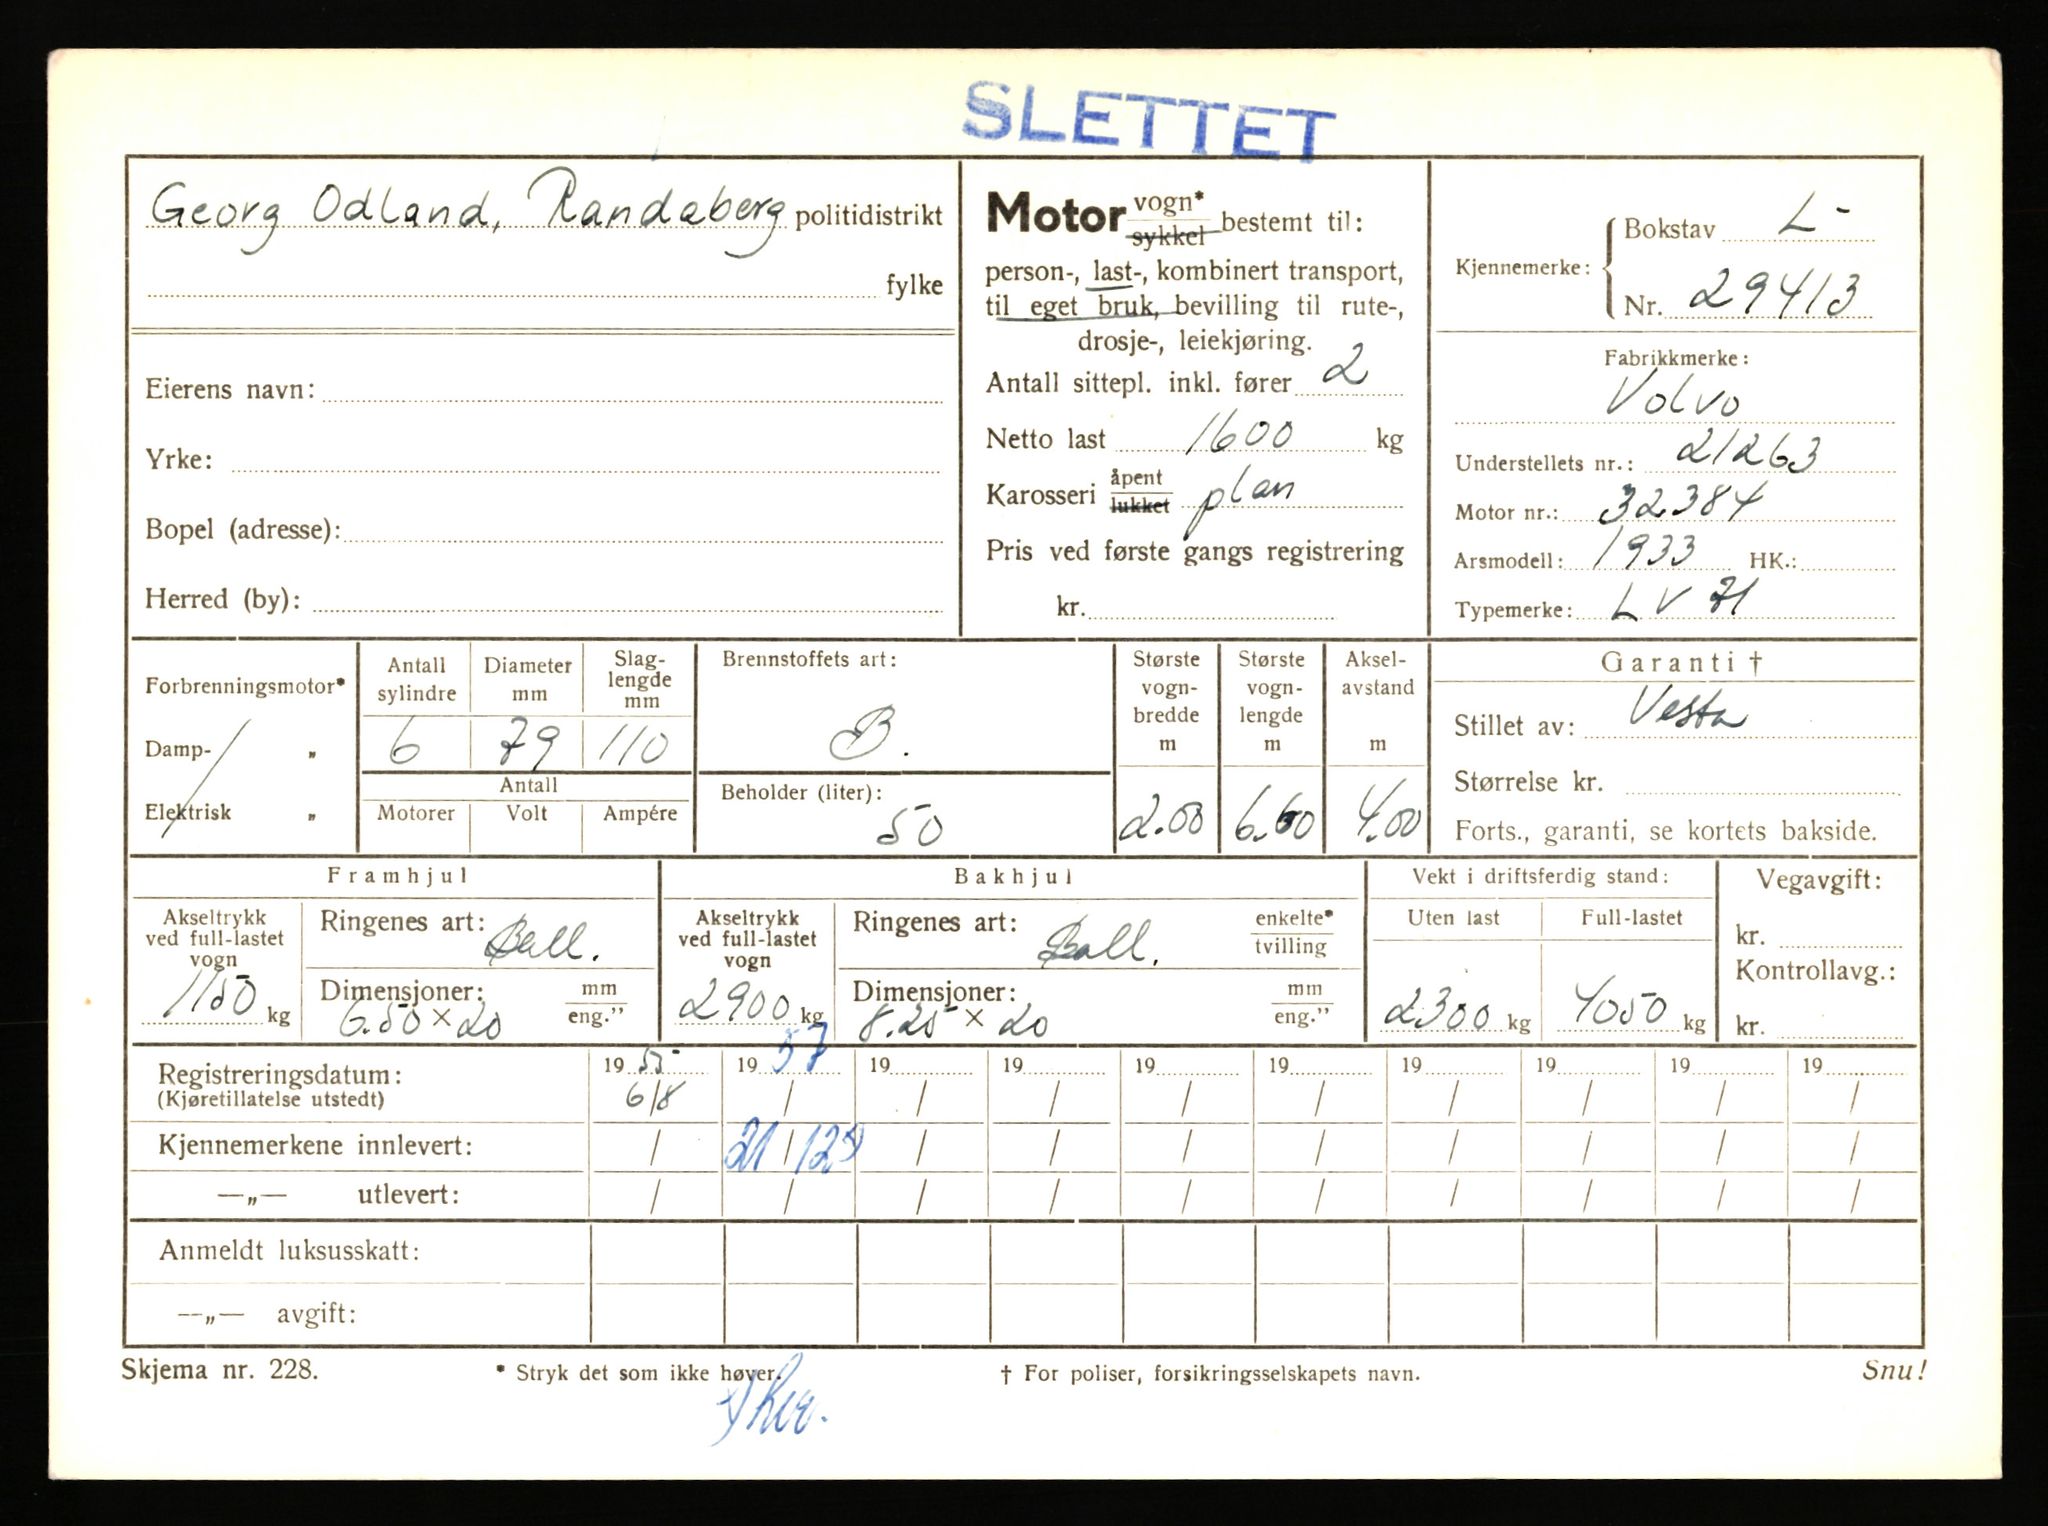 SLETTET
Georg Odland, Randaberg politidistrikt
fylke
Eierens navn:
Yrke:
Bopel (adresse):
Herred (by):
Motor vogn* sykkel bestemt til:
person-, last-, kombinert transport,
til eget bruk, bevilling til rute-,
drosje-, leiekjøring.
Antall sittepl. inkl. fører 2
Netto last 1600 kg
Karosseri åpent lukket plan
Pris ved første gangs registrering
kr.
Kjennemerke: Bokstav L-
Nr. 29413
Fabrikkmerke:
Volvo
Understellets nr.: 21263
Motor nr.: 32384
Arsmodell: 1933 HK.:
Typemerke: LV 71
Forbrenningsmotor*
Damp- „
Elektrisk „
Antall sylindre Diameter mm Slag-lengde mm
6 79 110
Antall
Motorer Volt Ampére
Brennstoffets art:
B.
Beholder (liter):
50
Største vogn-bredde m
2.00
Største vogn-lengde m
6.60
Aksel-avstand m
4.00
Garanti †
Stillet av: Vesta
Størrelse kr.
Forts., garanti, se kortets bakside.
Framhjul
Akseltrykk ved full-lastet vogn
1150 kg
Ringenes art: Ball.
Dimensjoner: mm eng."
6.50 × 20
Bakhjul
Akseltrykk ved full-lastet vogn
2900 kg
Ringenes art: Ball. enkelte* tvilling
Dimensjoner: mm eng."
8.25 × 20
Vekt i driftsferdig stand:
Uten last Full-lastet
2300 kg 4050 kg
Vegavgift:
kr.
Kontrollavg.:
kr.
Registreringsdatum: 19 55 19 57 19 19 19 19 19 19 19 19
(Kjøretillatelse utstedt) 6/8 / / / / / / / / /
Kjennemerkene innlevert: / 21/12 / / / / / / / /
—„— utlevert: / / / / / / / / / /
Anmeldt luksusskatt:
—„— avgift:
Skjema nr. 228. * Stryk det som ikke høver. † For poliser, forsikringsselskapets navn. Snu!